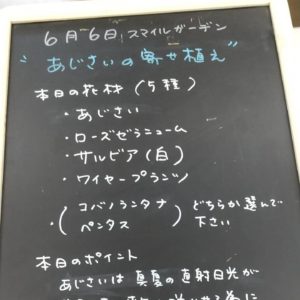 6月6日 スマイルガーデン
"あじさいの寄せ植え"
本日の花材(5種)
・あじさい
・ローズゼラニューム
・サルビア(白)
・ワイヤープランツ
・(コバノランタナ
ペンタス)どちらか選んで
下さい
本日のポイント
あじさいは真夏の直射日光が